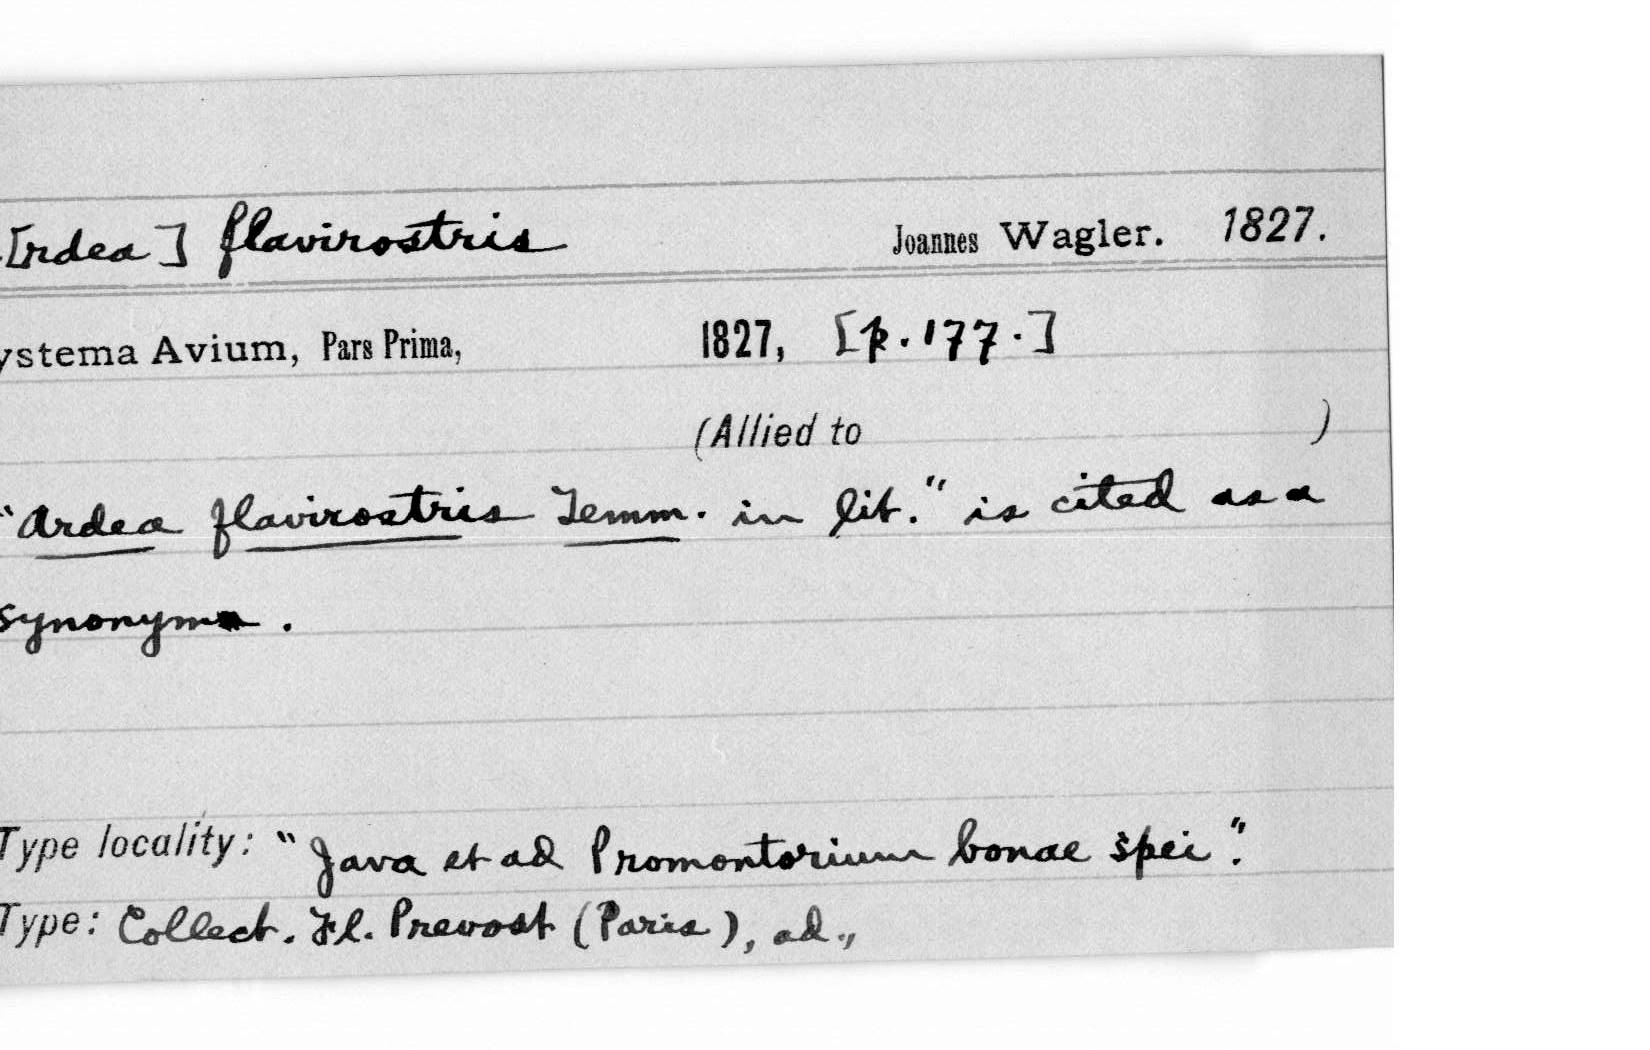 [rdea] flavirostris Joannes Wagler. 1827.
ystema Avium, Pars Prima, 1827, [p. 177.]
(Allied to )
"Ardea flavirostris Temm. in lit." is cited as a
synonym .
Type locality: "Java et ad Promontorium bonae spei".
Type: Collect. Fl. Prevost (Paris), ad.,